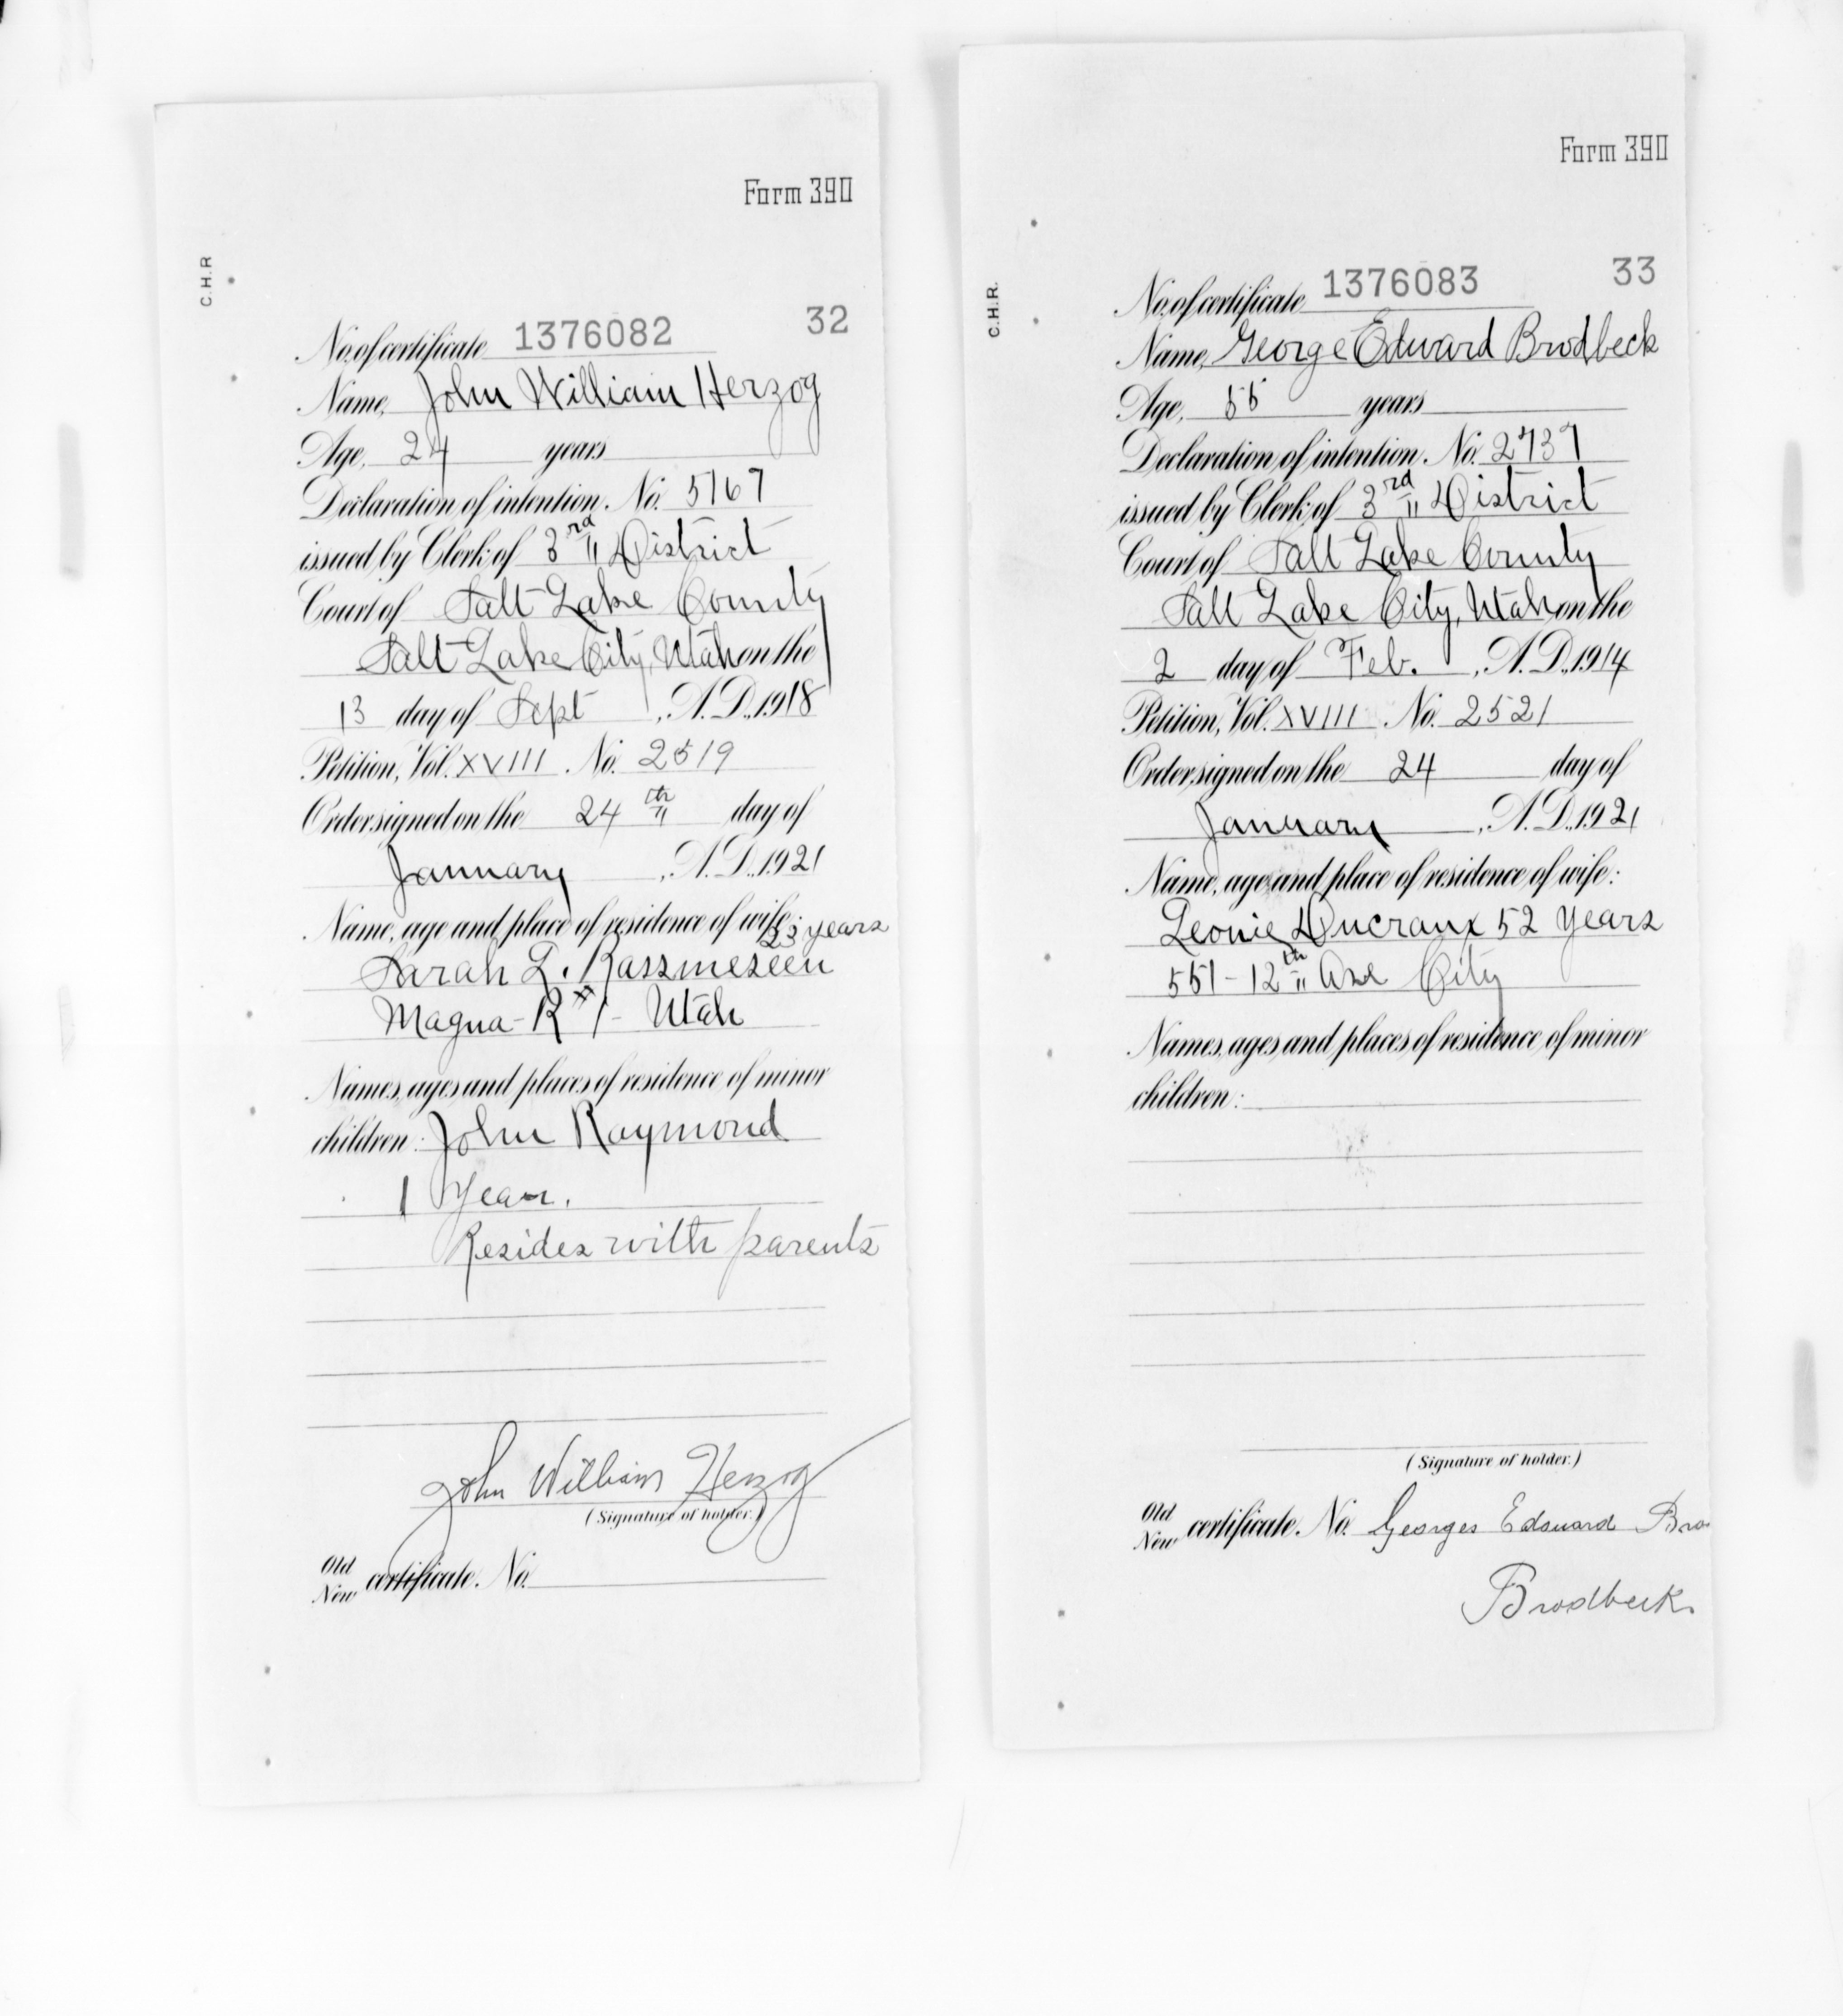 Form 390
C.H.R
No. of certificate 1376082 32
Name, John William Herzog
Age, 24 years
Declaration of intention. No. 5167
issued by Clerk of 3rd District
Court of Salt Lake County
Salt Lake City, Utah on the
13 day of Sept , A.D., 1918
Petition, Vol. XVIII . No. 2519
Order signed on the 24th day of
January , A.D., 1921
Name, age and place of residence of wife: 23 years
Sarah L. Rassmeseen
Magna - R#1 - Utah
Names, ages and places of residence of minor
children: John Raymond
1 Year.
Resides with parents
John William Herzog
(Signature of holder.)
Old
New certificate. No.
Form 390
C.H.R.
No. of certificate 1376083 33
Name, George Edward Brodbeck
Age, 55 years
Declaration of intention. No. 2737
issued by Clerk of 3rd District
Court of Salt Lake County
Salt Lake City, Utah on the
2 day of Feb. , A.D., 1914
Petition, Vol. XVIII . No. 2521
Order signed on the 24 day of
January , A.D., 1921
Name, age and place of residence of wife:
Leonie Ducraux 52 years
551 - 12th Ave City
Names, ages and places of residence of minor
children:
(Signature of holder.)
Old
New certificate. No. Georges Edouard Bro
Brodbeck